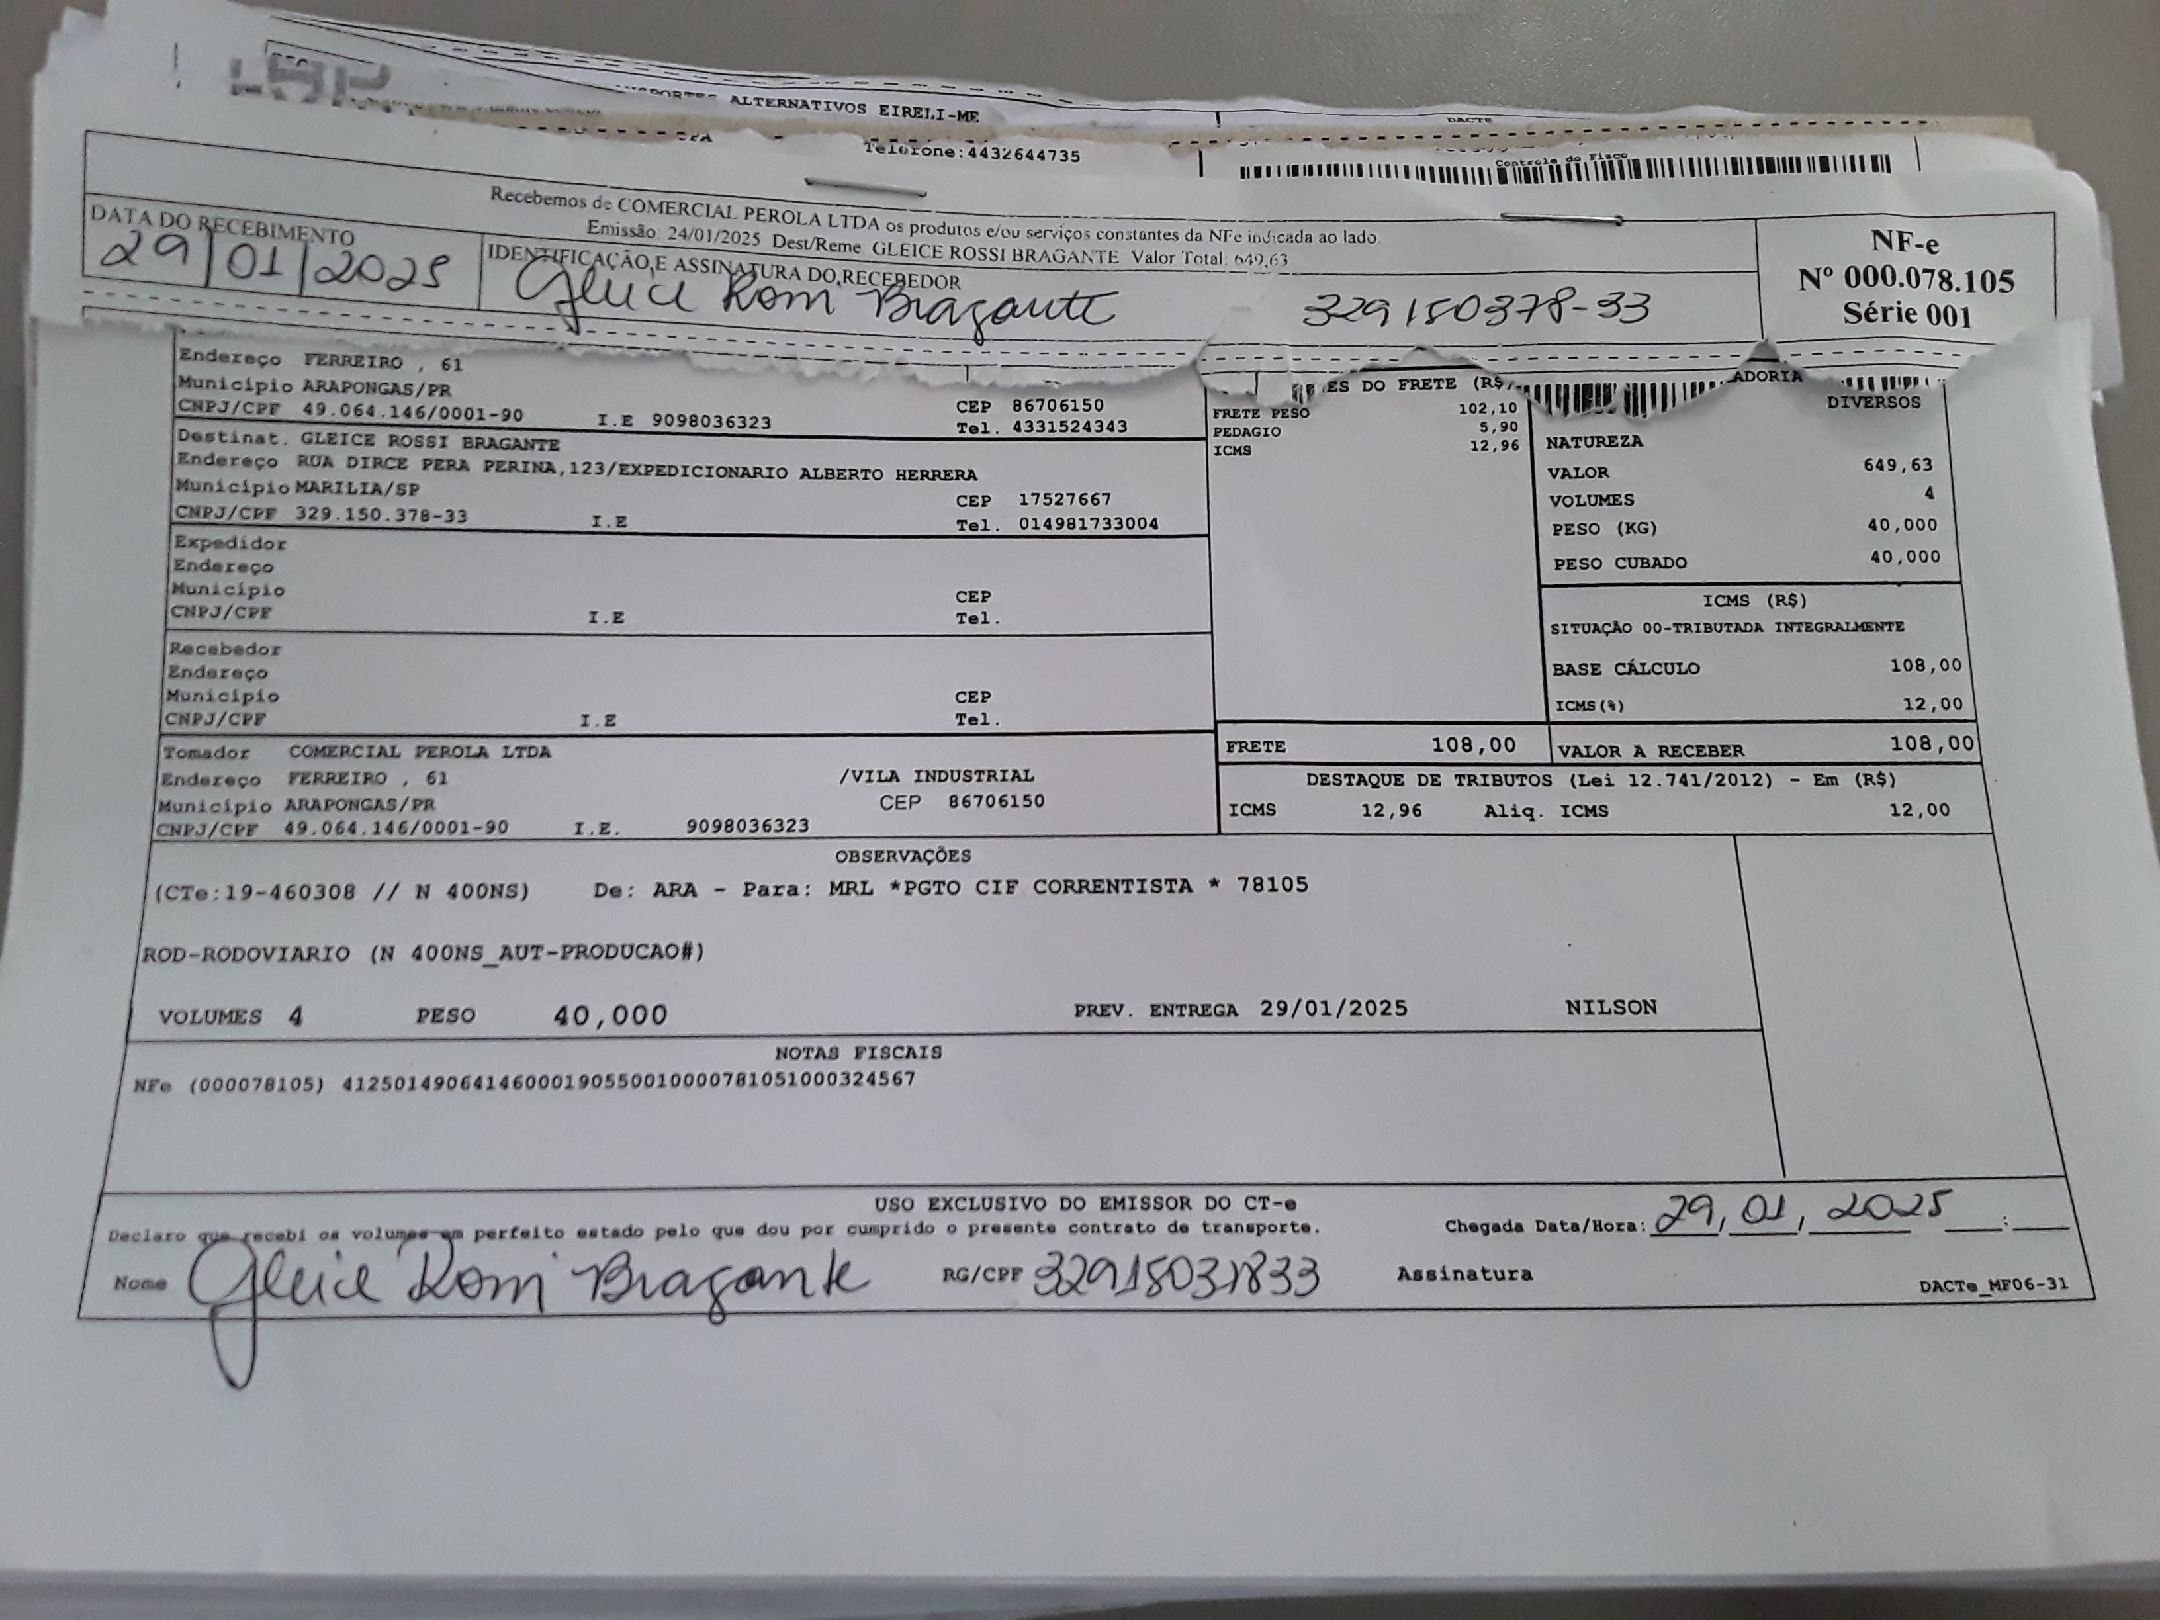 ALTERNATIVOS EIRELI-ME
DACTE
Telefone:4432644735
Controle do Fisco
Recebemos de COMERCIAL PEROLA LTDA os produtos e/ou serviços constantes da NFe indicada ao lado.
Emissão: 24/01/2025 Dest/Reme GLEICE ROSSI BRAGANTE Valor Total: 649,63
DATA DO RECEBIMENTO
29/01/2025
IDENTIFICAÇÃO E ASSINATURA DO RECEBEDOR
Gleice Rossi Bragante 329150378-33
NF-e
Nº 000.078.105
Série 001
Endereço FERREIRO , 61
Município ARAPONGAS/PR CEP 86706150
CNPJ/CPF 49.064.146/0001-90 I.E 9098036323 Tel. 4331524343
Destinat. GLEICE ROSSI BRAGANTE
Endereço RUA DIRCE PERA PERINA,123/EXPEDICIONARIO ALBERTO HERRERA
Município MARILIA/SP CEP 17527667
CNPJ/CPF 329.150.378-33 I.E Tel. 014981733004
Expedidor
Endereço
Município CEP
CNPJ/CPF I.E Tel.
Recebedor
Endereço
Município CEP
CNPJ/CPF I.E Tel.
Tomador COMERCIAL PEROLA LTDA
Endereço FERREIRO , 61 /VILA INDUSTRIAL
Município ARAPONGAS/PR CEP 86706150
CNPJ/CPF 49.064.146/0001-90 I.E. 9098036323
ES DO FRETE (R$)
FRETE PESO 102,10
PEDAGIO 5,90
ICMS 12,96
ADORIA
DIVERSOS
NATUREZA
VALOR 649,63
VOLUMES 4
PESO (KG) 40,000
PESO CUBADO 40,000
ICMS (R$)
SITUAÇÃO 00-TRIBUTADA INTEGRALMENTE
BASE CÁLCULO 108,00
ICMS(%) 12,00
FRETE 108,00 VALOR A RECEBER 108,00
DESTAQUE DE TRIBUTOS (Lei 12.741/2012) - Em (R$)
ICMS 12,96 Aliq. ICMS 12,00
OBSERVAÇÕES
(CTe:19-460308 // N 400NS) De: ARA - Para: MRL *PGTO CIF CORRENTISTA * 78105
ROD-RODOVIARIO (N 400NS_AUT-PRODUCAO#)
VOLUMES 4 PESO 40,000 PREV. ENTREGA 29/01/2025 NILSON
NOTAS FISCAIS
NFe (000078105) 41250149064146000190550010000781051000324567
USO EXCLUSIVO DO EMISSOR DO CT-e
Declaro que recebi os volumes em perfeito estado pelo que dou por cumprido o presente contrato de transporte.
Chegada Data/Hora: 29,01,2025 __:__
Nome Gleice Rossi Bragante RG/CPF Assinatura
DACTe_MF06-31